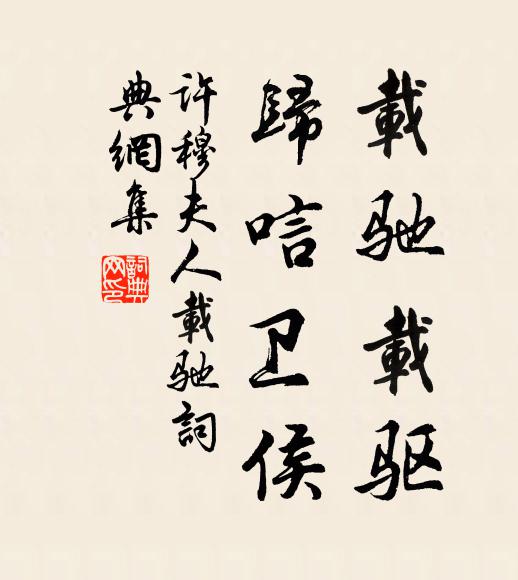 載驰載驱
歸唁卫侯
许穆夫人載驰詞
典網集
詞典
网印